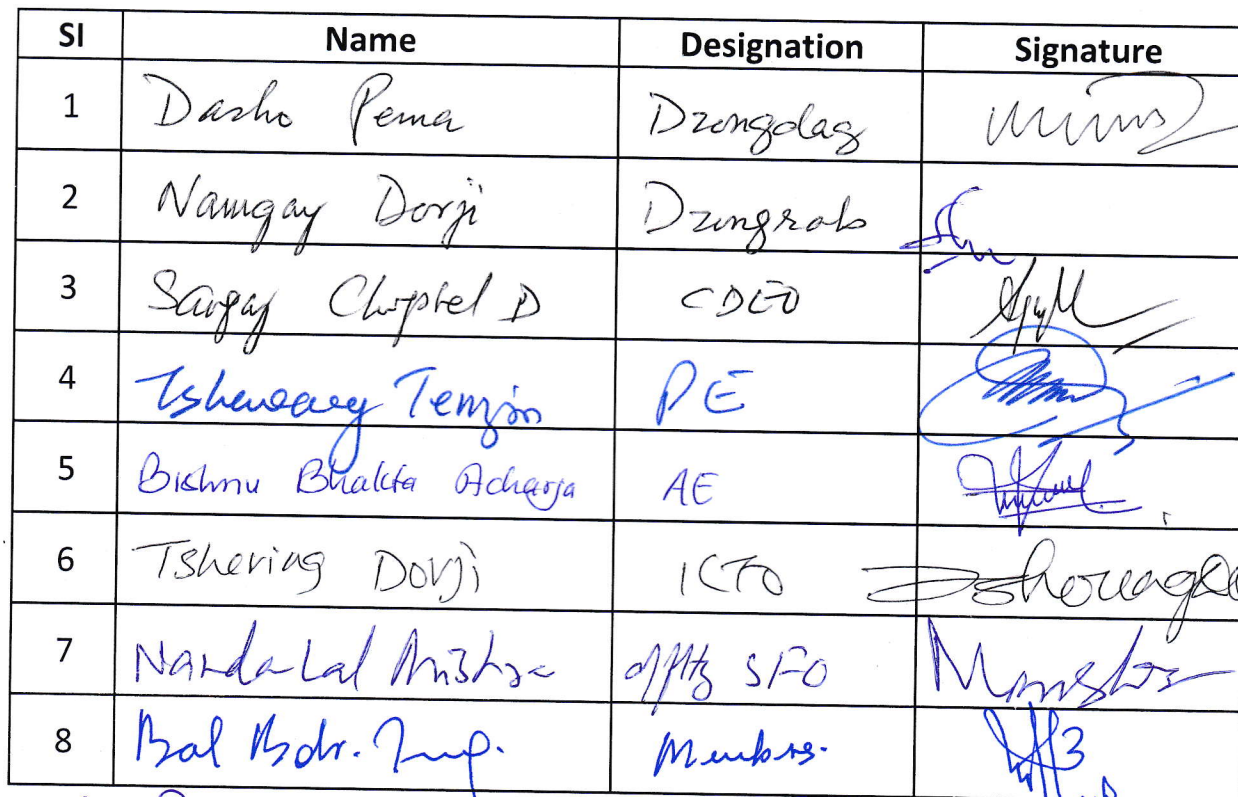 Sl Name Designation Signature
1 Dasho Pema Dzongdag
2 Namgay Dorji Dzongrab
3 Sangay Chophel D CDEO
4 Tshewang Tenzin PE
5 Bishnu Bhakta Acharja AE
6 Tshering Dorji ICTO
7 Nanda Lal Mishra SFO
8 Bal Bdr. Members.